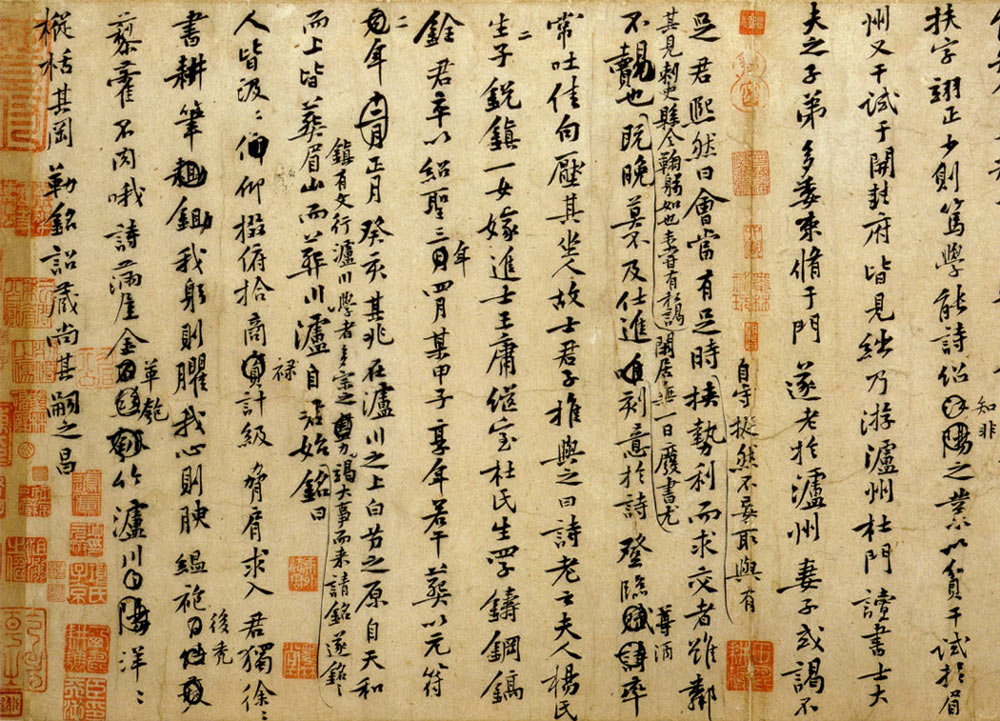 扶字翊正少則篤學能詩紹知非之業以貢干試於眉
州又干試于開封府皆見絀乃游瀘州杜門讀書士大
夫之子弟多委束脩于門遂老於瀘州妻子或謁不
自守挺然不妄取與有
足君熙然曰會當有足時挾勢利而求交者雖鄰
其見刺史縣令鞠躬如也未嘗有私謁閑居無一日廢書尤
不覿也既晚莫不及仕進唯刻意於詩登臨樽酒率
常吐佳句壓其坐人故士君子推與之曰詩老云夫人楊氏
生二子銳鎮一女嫁進士王庸繼室杜氏生四子鑄鋼鎬
銓君卒以紹聖三年四月某甲子享年若干葬以元符
二年正月癸亥其兆在瀘川之上白芀之原自天和
鎮有文行瀘川學者多宗之竭大事而来請銘遂銘之
而上皆葬眉山而葬川瀘自祿始銘曰
人皆汲汲仰掇俯拾商計級脅肩求入君獨徐徐
書耕筆耡我躬則臞我心則腴縕袍後禿
藜藿不肉哦詩滿屋單瓢瀘川洋洋
樅栝其岡勒銘詔藏尚其嗣之昌